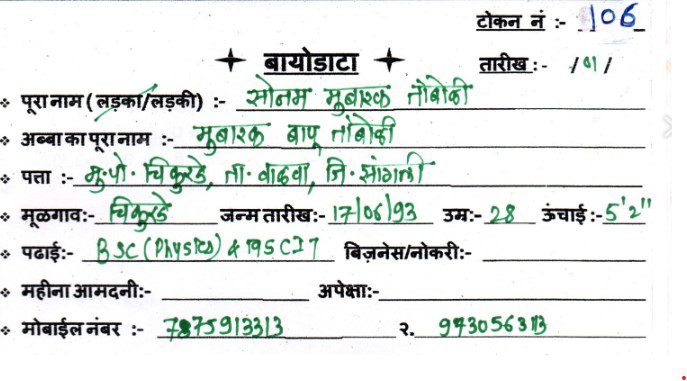 टोकन नं :- 106
बायोडाटा तारीख :- / 01 /
पूरा नाम ( लड़का/लड़की) :- सोनम मुबारक तांबोळी
अब्बा का पूरा नाम :- मुबारक बापू तांबोळी
पत्ता :- मु.पो. चिकुरडे, ता. वाळवा, जि. सांगली
मूळगाव:- चिकुरडे जन्म तारीख:- 17/06/93 उम्र:- 28 ऊंचाई :- 5'2"
पढाई:- BSC (Physics) & MSCIT बिज़नेस/नोकरी:-
महीना आमदनी:- अपेक्षा:-
मोबाईल नंबर :- 7875913313 २.